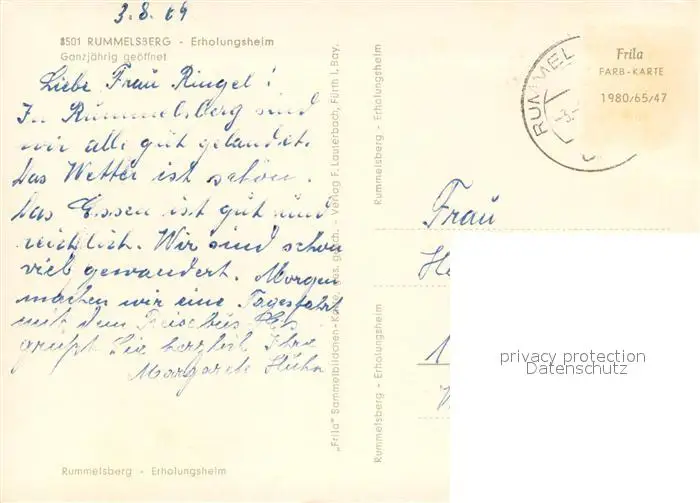 3.8.69
8501 RUMMELSBERG - Erholungsheim
Ganzjährig geöffnet
Liebe Frau Ringel!
In Rummelsberg sind
wir alle gut gelandet.
Das Wetter ist schön.
Das Essen ist gut und
reichlich. Wir sind schon
viel gewandert. Morgen
machen wir eine Tagesfahrt
mit dem Reisebus. Es
grüßt Sie herzlich Ihre
Margarete Huhn
Rummelsberg - Erholungsheim
„Frila" Sammelbildonen-Karte ges. gesch. - Verlag F. Lauterbach, Fürth i. Bay.
Rummelsberg - Erholungsheim
Rummelsberg - Erholungsheim
RUMMEL
-3.
Frila
FARB-KARTE
1980/65/47
Frau
privacy protection
Datenschutz